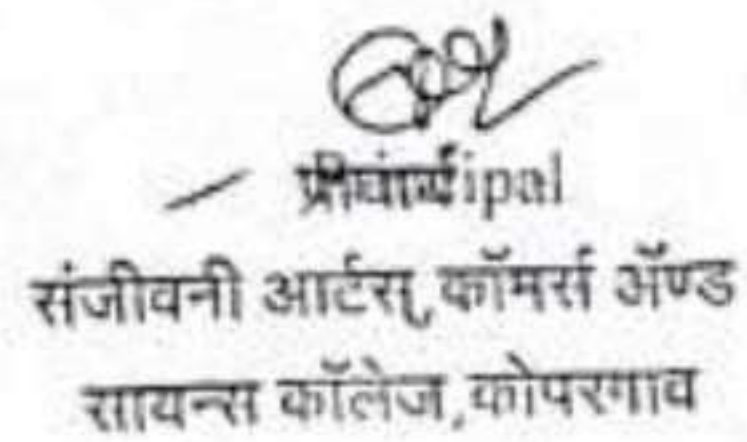 संजीवनी आर्टस्,कॉमर्स ॲण्ड
सायन्स कॉलेज,कोपरगाव